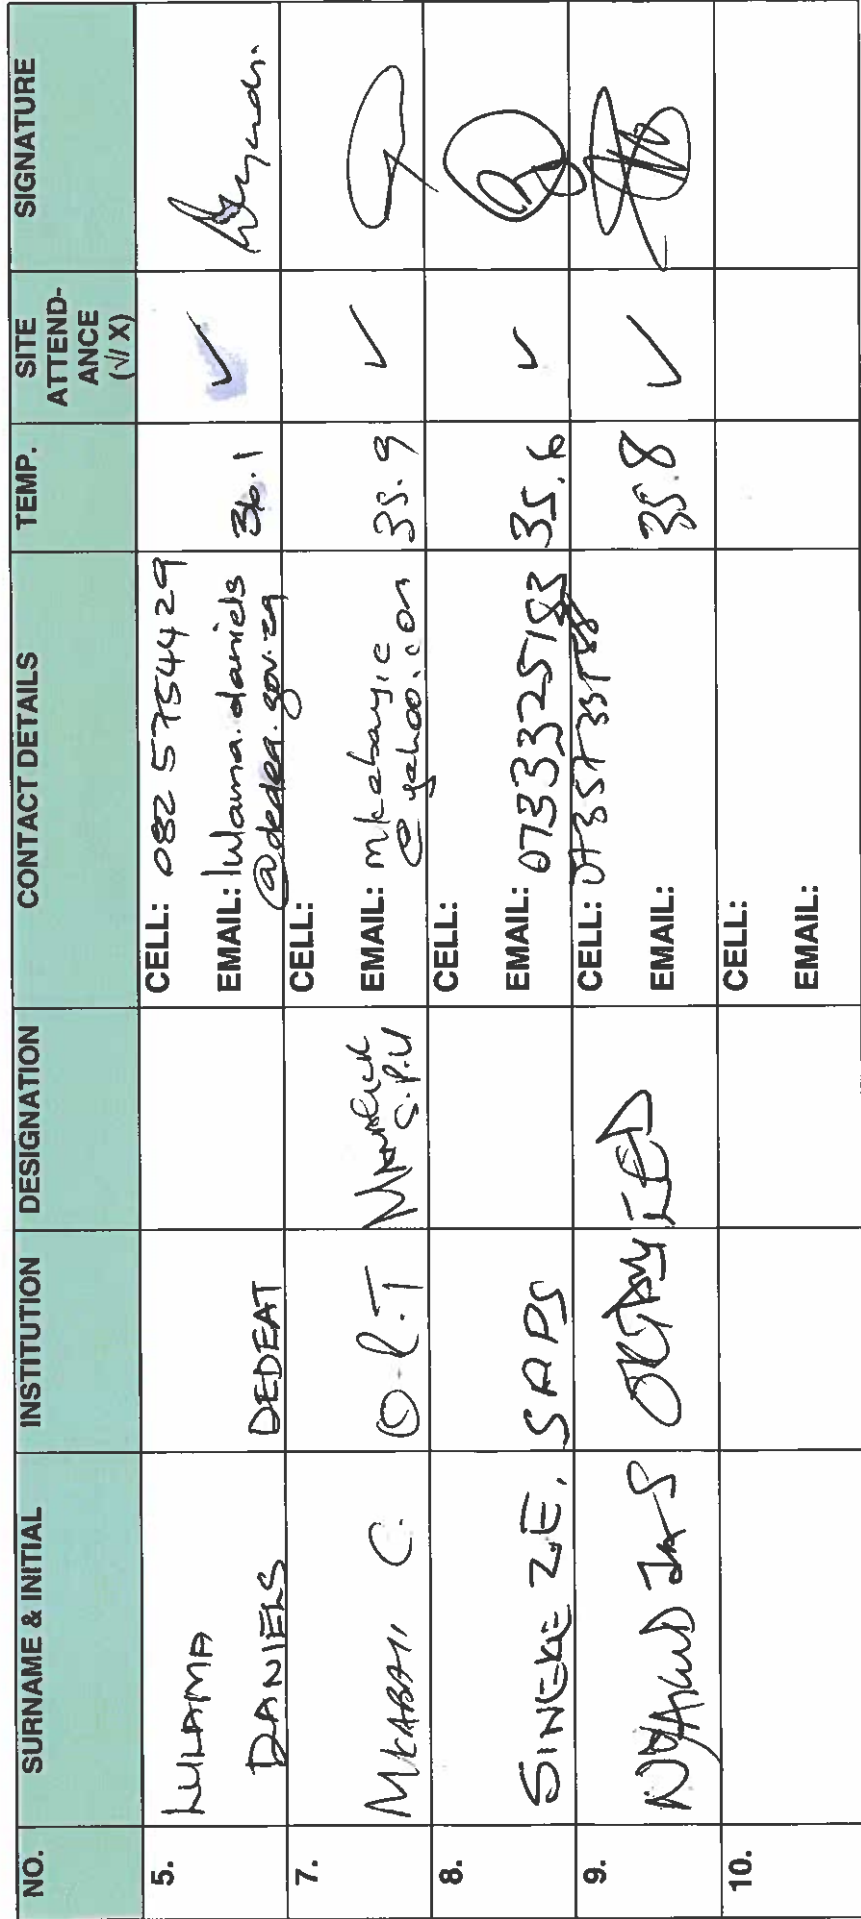 NO. SURNAME & INITIAL INSTITUTION DESIGNATION CONTACT DETAILS TEMP. SITE ATTEND-ANCE (√/ X) SIGNATURE
5. LULAMA DANIELS DEDEAT CELL: 082 5754429 36.1 ✓
EMAIL: lulama.daniels
@dedea.gov.za
7. MKABAYI C. O.R.T S.P.U CELL: 35.9 ✓
EMAIL: mkabayic
@yahoo.com
8. SINEKE Z.E. SAPS CELL: 35.6 ✓
EMAIL: 0733325183
9. CELL: 35.8 ✓
EMAIL:
10. CELL:
EMAIL: